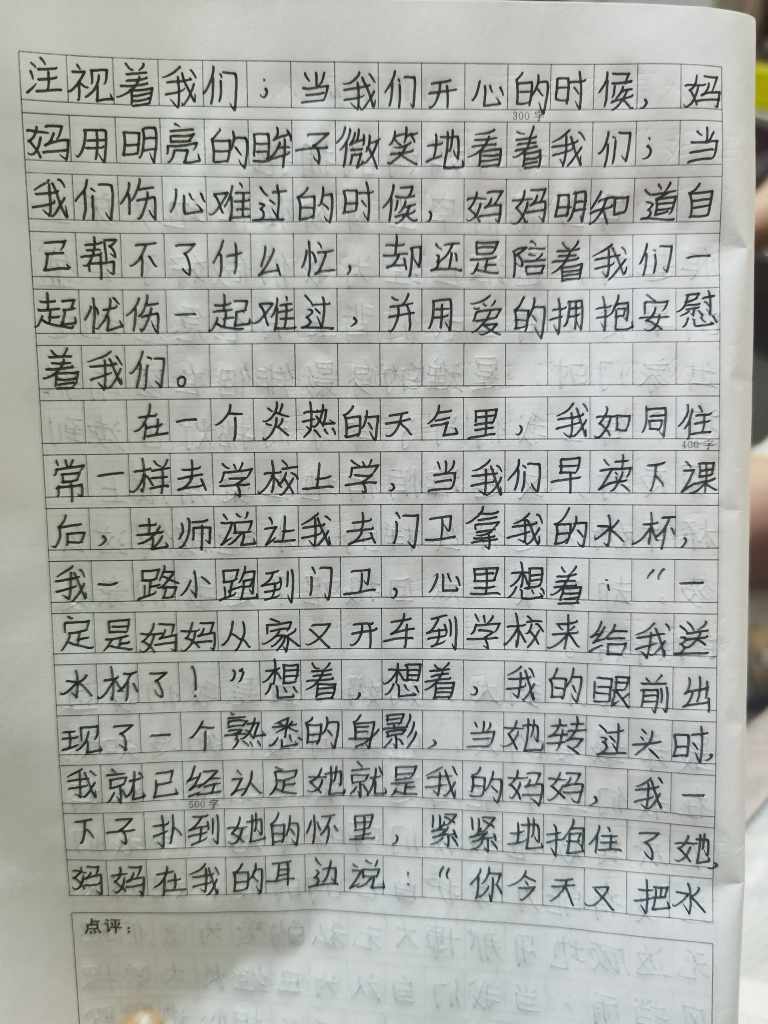 注视着我们；当我们开心的时候，妈
300字
妈用明亮的眸子微笑地看着我们；当
我们伤心难过的时候，妈妈明知道自
己帮不了什么忙，却还是陪着我们一
起忧伤一起难过，并用爱的拥抱安慰
着我们。
在一个炎热的天气里，我如同住
400字
常一样去学校上学，当我们早读下课
后，老师说让我去门卫拿我的水杯，
我一路小跑到门卫，心里想着：“一
定是妈妈从家又开车到学校来给我送
水杯了！”想着，想着，我的眼前出
现了一个熟悉的身影，当她转过头时，
我就已经认定她就是我的妈妈，我一
500字
下子扑到她的怀里，紧紧地抱住了她，
妈妈在我的耳边说：“你今天又把水
点评：